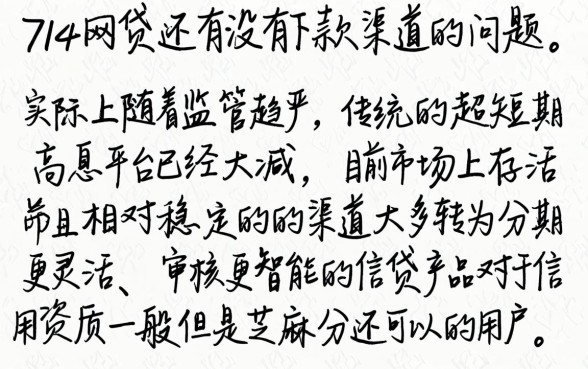 714网贷还有没有下款渠道的问题。
实际上随着监管趋严，传统的超短期
高息平台已经大减，目前市场上存活
而且相对稳定的的渠道大多转为分期
更灵活、审核更智能的信贷产品对于信
用资质一般但是芝麻分还可以的用户。